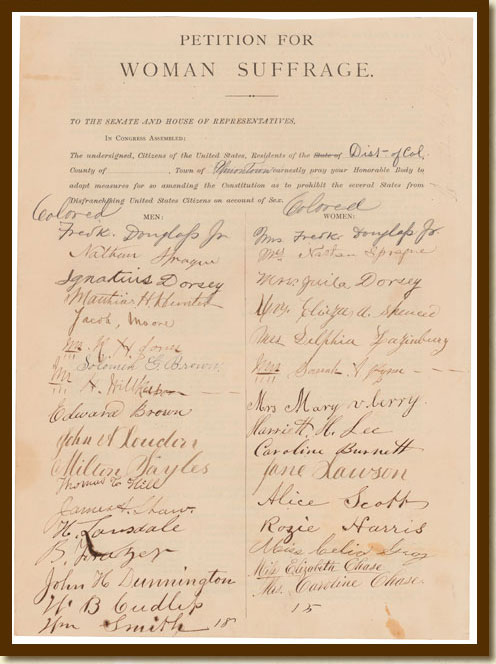 PETITION FOR
WOMAN SUFFRAGE.
TO THE SENATE AND HOUSE OF REPRESENTATIVES,
IN CONGRESS ASSEMBLED;
The undersigned, Citizens of the United States, Residents of the State of Dist. of Col.
County of , Town of Uniontown earnestly pray your Honorable Body to
adopt measures for so amending the Constitution as to prohibit the several States from
Disfranchising United States Citizens on account of Sex.
Colored
MEN:
Fredk. Douglass Jr
Nathan Sprague
Ignatius Dorsey
Matthias H Hunter
Jacob, Moore
Mr
Mr Solomon G. Brown
Edward Brown
John A Loudin
Milton Sayles
Thomas C Hill
James H. Shaw.
H. Lansdale
B. Frazier
John H Dunnington
W B Cudlip
Wm Smith 18
Colored
WOMEN:
Mrs Fredk Douglass Jr.
Mrs Nathan Sprague
Mrs Julia Dorsey
Mrs. Eliza A. Spencer
Mrs Delphia
Mrs Sarah A
Mrs Mary V. Berry.
Harriett H. Lee
Caroline Burnett
Jane Lawson
Alice Scott
Rozie Harris
Miss Celia Gray
Miss Elizabeth Chase
Mrs. Caroline Chase
15